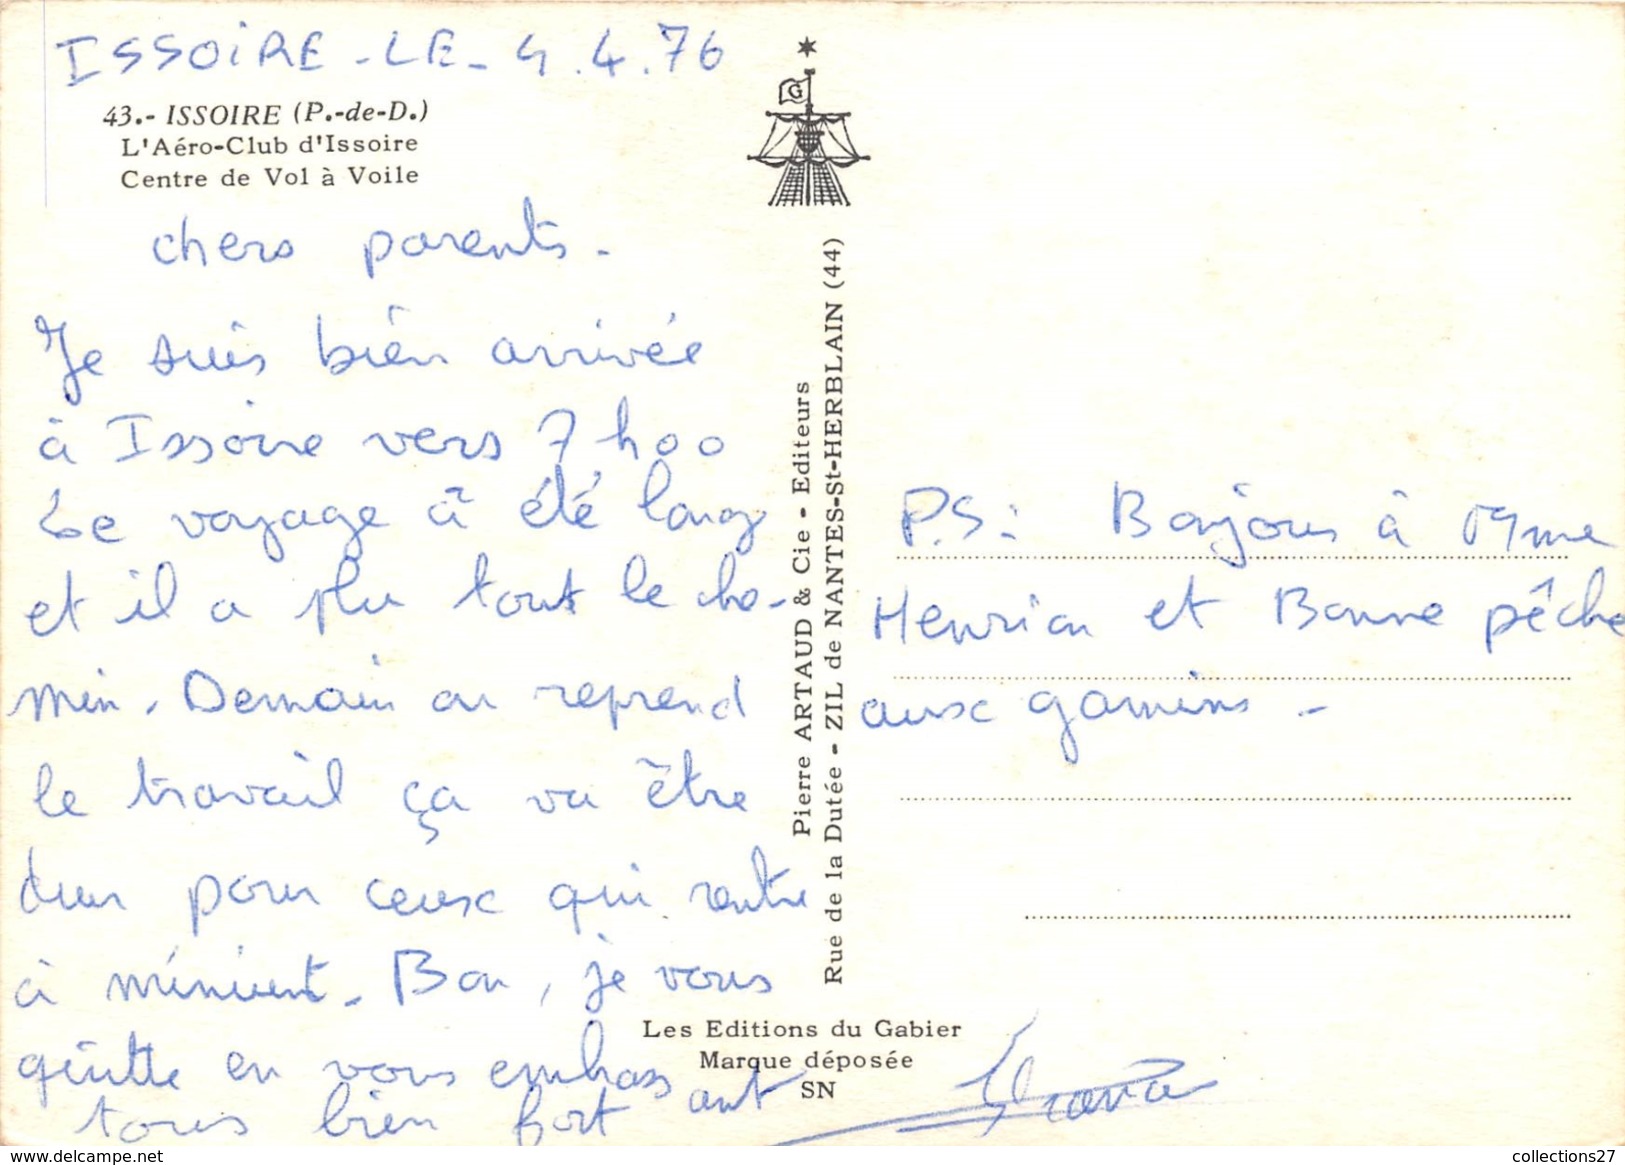 ISSOIRE - LE - 4.4.76
43.- ISSOIRE (P.-de-D.)
L'Aéro-Club d'Issoire
Centre de Vol à Voile
chers parents -
Je suis bien arrivée
à Issoire vers 7 h 00
Le voyage à été long
et il a plu tout le che-
min. Demain on reprend
le travail ça va être
dur pour ceux qui rentre
à minuit. Bon, je vous
quitte en vous embrass
ant
tous bien fort
G
Pierre ARTAUD & Cie - Editeurs
Rue de la Dutée - ZIL de NANTES-St-HERBLAIN (44)
Les Editions du Gabier
Marque déposée
SN
P.S: Bonjour à Mme
et Bonne pêche
aux gamins -
collections27